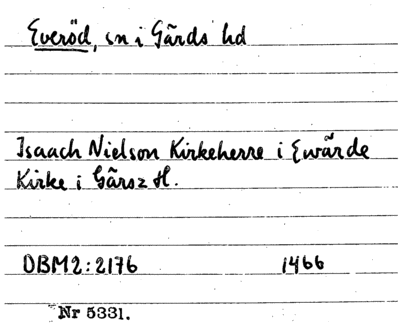 Everöd, sn i Gärds hd
Isaach Nielson Kirkeherre i Ewärde
Kirke i Gärsz H.
DBM2:2176 1466
Nr 5331.